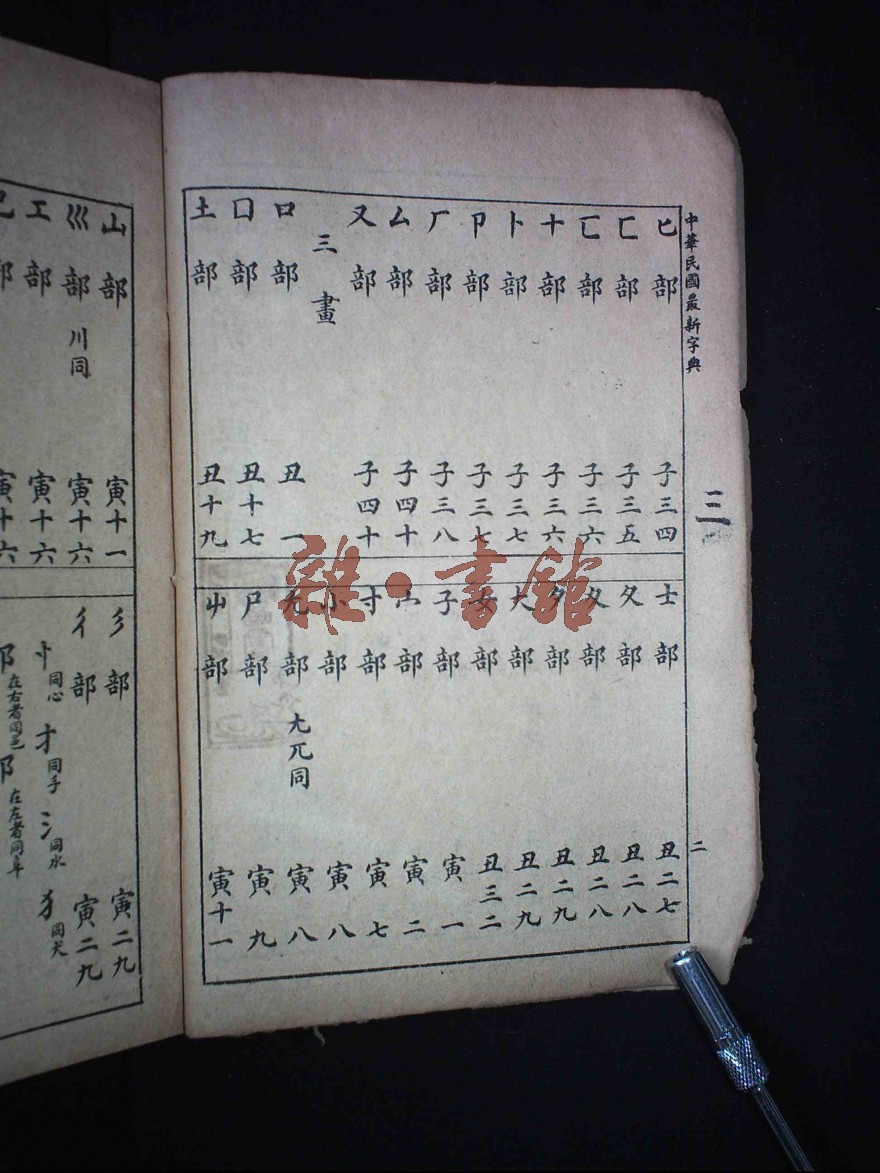 中華民國最新字典
三
二
匕部 子三四
匚部 子三五
匸部 子三六
十部 子三六
卜部 子三七
卩部 子三七
厂部 子三八
厶部 子四十
又部 子四十
三畫
口部 丑一
囗部 丑十七
土部 丑十九
士部 丑二七
夂部 丑二八
夊部 丑二八
夕部 丑二九
大部 丑二九
女部 丑三二
子部 寅一
宀部 寅二
寸部 寅七
小部 寅八
尢部 尣兀同 寅八
尸部 寅九
屮部 寅十一
山部 寅十一
巛部 川同 寅十六
工部 寅十六
己部 寅十六
彡部 寅二九
彳部 寅二九
忄同心 扌同手 氵同水 犭同犬
阝在右者同邑 阝在左者同阜
雜·書館